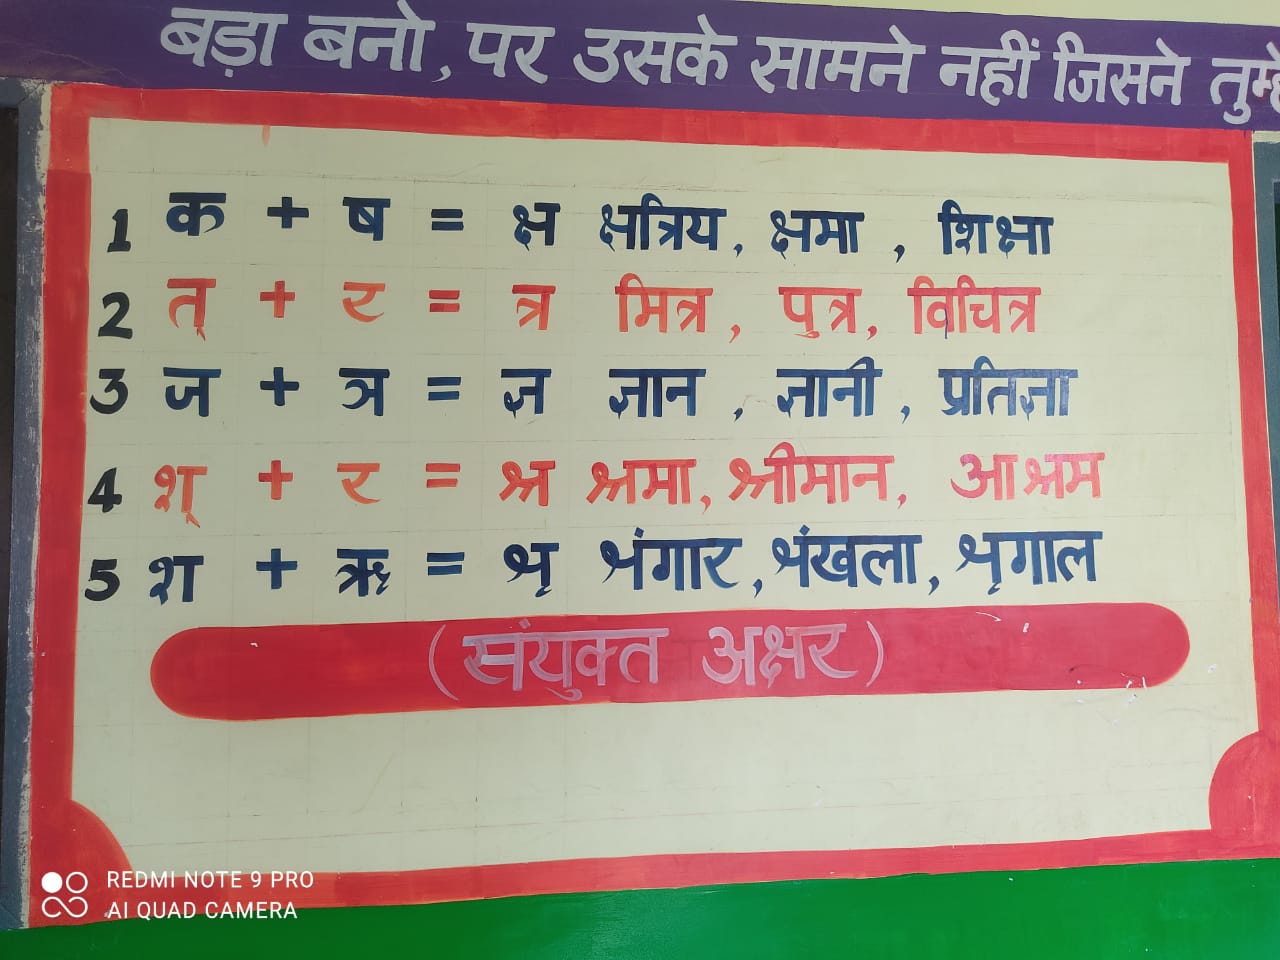 बड़ा बनो, पर उसके सामने नहीं जिसने तुम्हे
1 क + ष = क्ष क्षत्रिय, क्षमा , शिक्षा
2 त् + र = त्र मित्र, पुत्र, विचित्र
3 ज + ञ = ज्ञ ज्ञान , ज्ञानी , प्रतिज्ञा
4 श् + र = श्र श्रमा, श्रीमान, आश्रम
5 श + ऋ = श्रृ श्रंगार, श्रंखला, श्रृगाल
(संयुक्त अक्षर)
REDMI NOTE 9 PRO
AI QUAD CAMERA